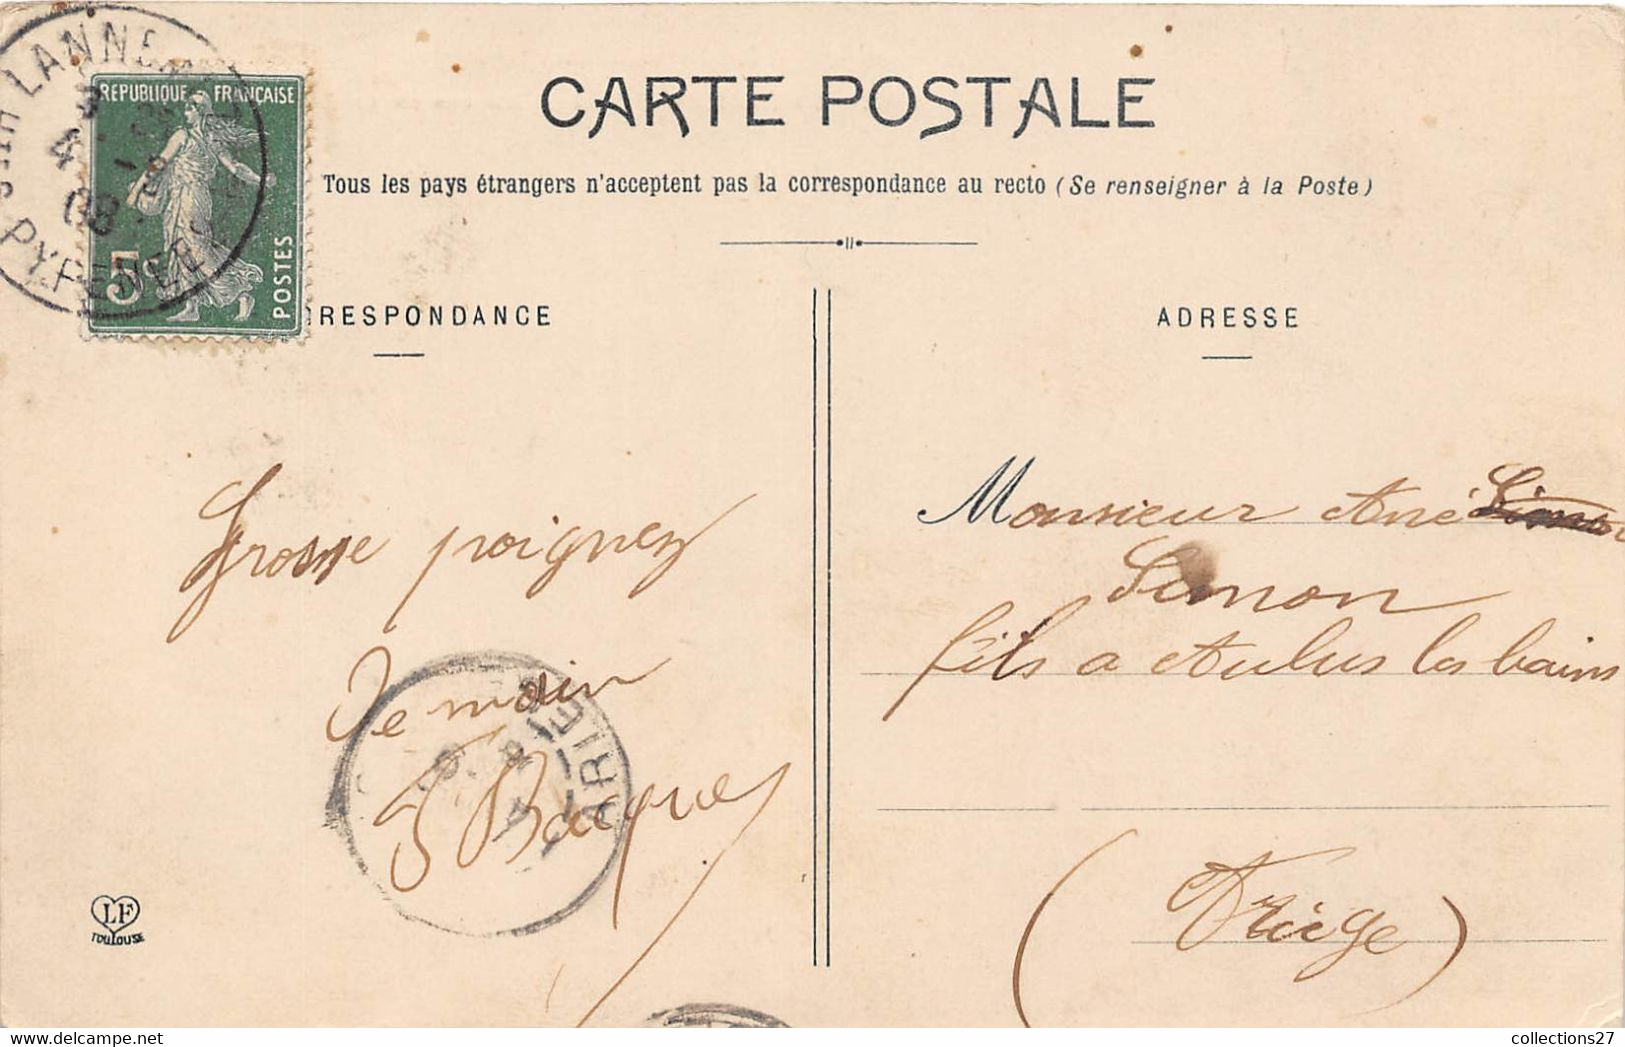 CARTE POSTALE
Tous les pays étrangers n'acceptent pas la correspondance au recto (Se renseigner à la Poste)
REPUBLIQUE FRANÇAISE
5c
POSTES
LANNEM
4
08
PYRENEES
RESPONDANCE
ADRESSE
Grosse poignez
De main
J Bacques
Monsieur Ané Simon
Simon
fils a Aulus les bains
(Ariège)
ARIEG
LF
TOULOUSE
collections27